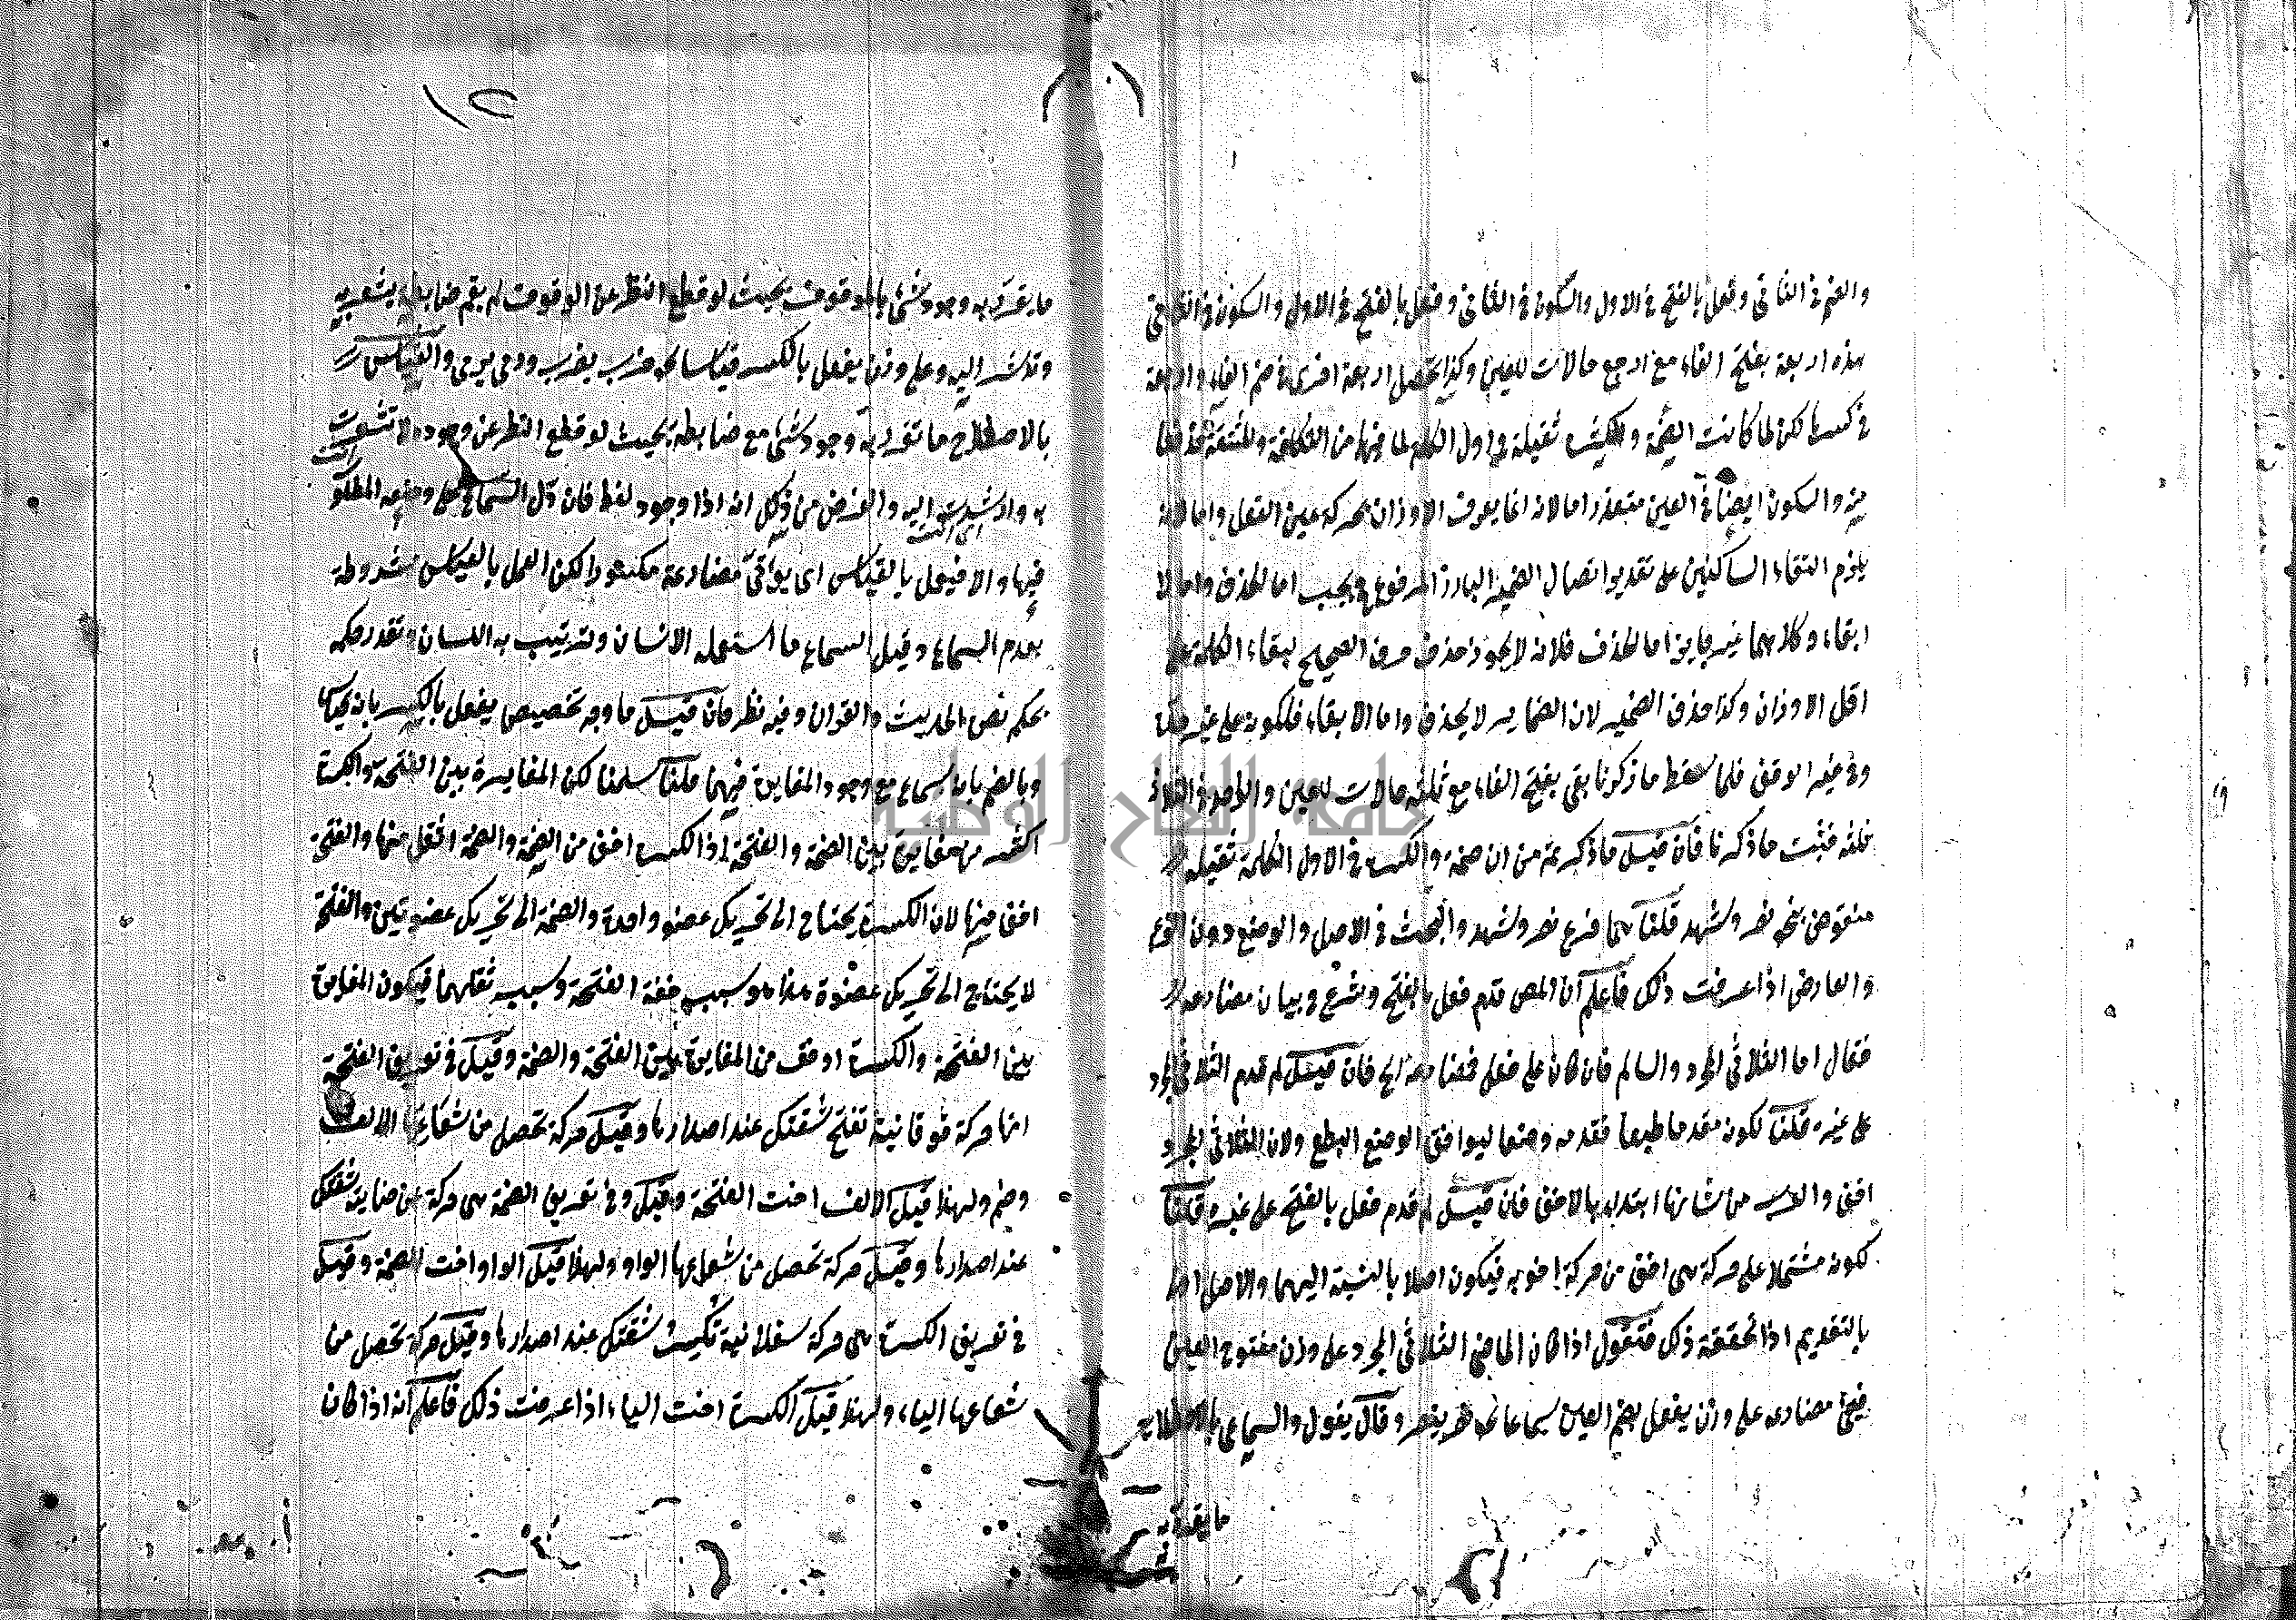 والضم في الثاني وفعل بالفتح في الاول والسكون في الثاني وفعل بالفتح في الاول والسكون في الثاني
هذه اربعة بفتح الفاء مع اربع حالات للعين وكذا تحصل اربعة اخرى في ضم الفاء واربعة
في كسرها لكن لما كانت الضمة والكسرة ثقيلة في اول الكلمة لما فيها من الكلفة والمشقة
والسكون ايضا في العين متعذر اما لانه انما يعرف الاوزان بحركة عين الفعل واما لانه
يلزم التقاء الساكنين على تقدير اتصال الضمير البارز المرفوع فيجب اما الحذف واما لا
ابقاء وكلاهما غير جايز اما الحذف فلانه لا يجوز حذف حرف الصحيح لبقاء الكلمة على
اقل الاوزان وكذا حذف الضمير لان الضماير لا يحذف واما الابقاء فلكونه على غير
وفي غير الوقف فلما سقط ما ذكرنا بقي بفتح الفاء مع ثلثة حالات للعين
فثبت ما ذكرنا فان قيل ما ذكرتم من ان ضمة والكسرة في الاول الكلمة ثقيلة
منقوض بنحو نصر وشهد قلنا هما فرع نصر وشهد والبحث في الاصل والوضع دون الفرع
والعارض اذا عرفت ذلك فاعلم ان المص قدم فعل بالفتح وشرع في بيان مضارعه
فقال اما الثلاثي المجرد والسالم فان كان على فعل فمضارعه الخ فان قيل لم قدم الثلاثي المجرد
على غيره قلنا لكونه مقدما طبعا فقدمه وضعا ليوافق الوضع الطبع ولان الثلاثي المجرد
اخف من شانها ابتداء بالاخف فان قيل لم قدم فعل بالفتح على غيره قلنا
لكونه مشتملا على حركة هي اخف من حركة اخويه فيكون اصلا بالنسبة اليهما والاصل
بالتقديم اذا تحققت ذلك فنقول اذا كان الماضي الثلاثي المجرد على وزن مفتوح العين
فيجئ مضارعه على وزن يفعل بضم العين سماعا نحو نصر ينصر وقال يقول والسماعي
ما يقرر به
١٢
ما يقرر به وجود شئ بالموقوف بحيث لو قطع النظر عن الوقوف لم يقم ضابطة يشعر به
وترشد اليه وعلى وزن يفعل بالكسر قياسا نحو ضرب يضرب ورمى يرمي والقياس
بالاصطلاح ما تقرر به وجود شئ مع ضابطة بحيث لو قطع النظر عن وجوده لا تشعرت
به وارشدت اليه والغرض من ذكر انه اذا وجود لفظ فان دل السماع على وضعه المطلوب
فيها والا فيعمل بالقياس اى يوافق مضارعة مكسورا لكن العمل بالقياس مشروطة
بعدم السماع وقيل السماع ما استعمله الانسان وترتيب به اللسان وتقدر حكمه
بحكم نص الحديث والقران وفيه نظر فان قيل ما وجه تخصيص يفعل بالكسر بانه قياس
وبالضم بانه سماع مع وجود المغايرة فيهما قلنا سلمنا لكن المغايرة بين الفتحة والكسرة
اكثر من مغايرة بين الضمة والفتحة اذ الكسرة اخف من الضمة والضمة اثقل منها والفتحة
اخف منها لان الكسرة يحتاج الى تحريك عضو واحدة والضمة الى تحريك عضوتين والفتحة
لا يحتاج الى تحريك عضوة هذا هو سبب خفة الفتحة وسبب ثقلهما فيكون المغايرة
بين الفتحة والكسرة اوفق من المغايرة بين الفتحة والضمة وقيل في تعريف الفتحة
انها حركة فوقانية تفتح شفتك عند اصدارها وقيل حركة تحصل من اشباعها الالف
وضم ولهذا قيل الالف اخت الفتحة وقيل وفي تعريف الضمة هي حركة عن ضماية شفتك
عند اصدارها وقيل حركة تحصل من اشباعها الواو ولهذا قيل الواو اخت الضمة وقيل
في تعريف الكسرة هي حركة سفلانية تكسر شفتك عند اصدارها وقيل حركة تحصل من
اشباعها الياء ولهذا قيل الكسرة اخت الياء اذا عرفت ذلك فاعلم انه اذا كان
جامعة النجاح الوطنية